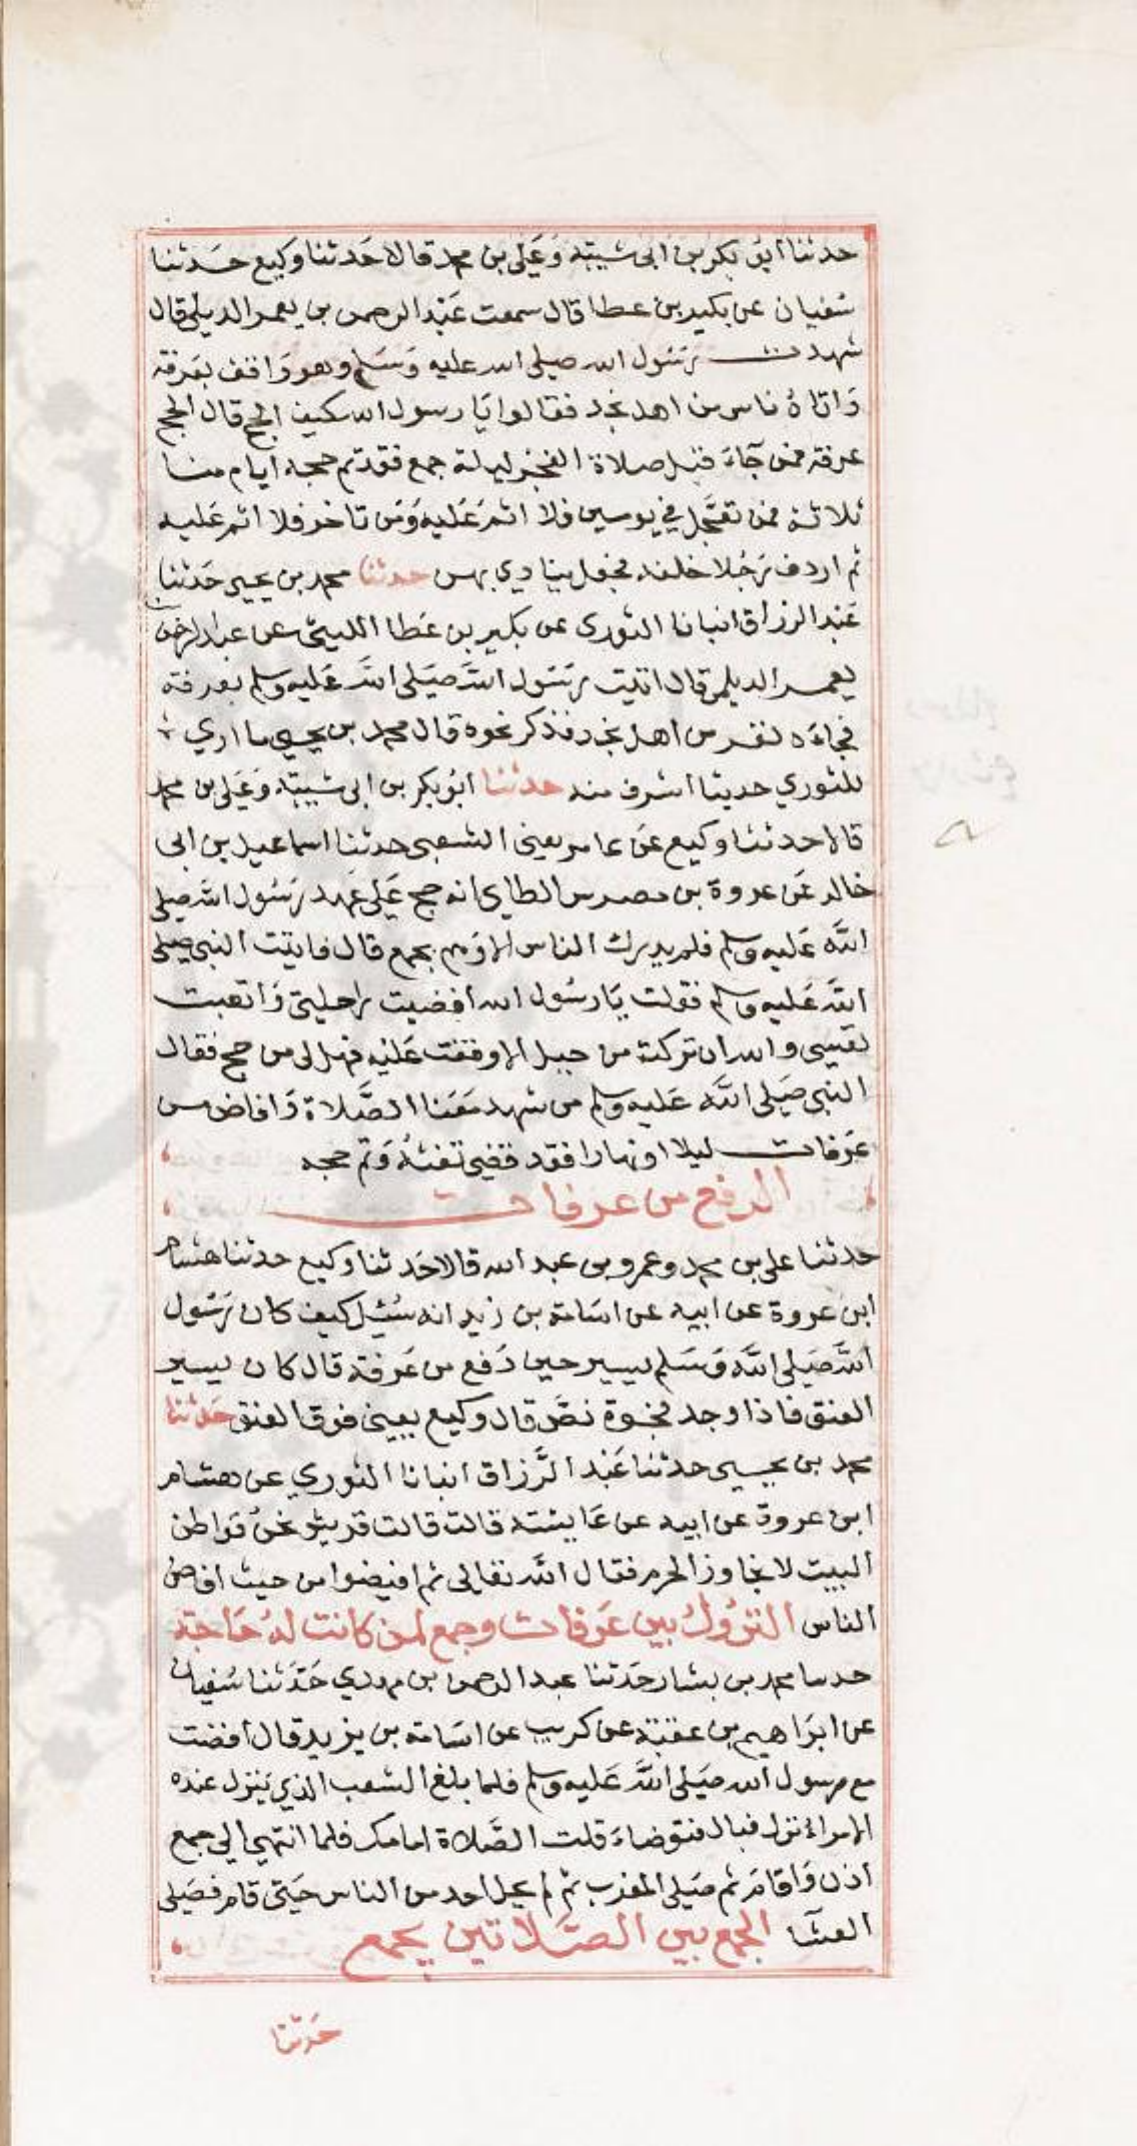 حدثنا ابو بكر بن ابى شيبة وعلى بن محمد قالا حدثنا وكيع حدثنا
سفيان عن بكير بن عطا قال سمعت عبد الرحمن بن يعمر الديلى قال
شهدت رسول الله صلى الله عليه وسلم وهو واقف بعرفة
واتاه ناس من اهل نجد فقالوا يا رسول الله كيف الحج قال الحج
عرفة فمن جاء قبل صلاة الفجر ليلة جمع فقد تم حجه ايام منا
ثلاثة فمن تعجل في يومين فلا اثم عليه ومن تاخر فلا اثم عليه
ثم اردف رجلا خلفه فجعل ينادي بهن حدثنا محمد بن يحيى حدثنا
عبد الرزاق انبانا الثورى عن بكير بن عطا الليثى عن عبد الرحمن بن
يعمر الديلمى قال اتيت رسول الله صلى الله عليه وسلم بعرفة
فجاءه نفر من اهل نجد فذكر نحوه قال محمد بن يحيى ما اري
للثوري حديثا اشرف منه حدثنا ابو بكر بن ابى شيبة وعلى بن محمد
قالا حدثنا وكيع عن عامر يعنى الشعبى حدثنا اسماعيل بن ابى
خالد عن عروة بن مضرس الطاى انه حج على عهد رسول الله صلى
الله عليه وسلم فلم يدرك الناس الا وهم بجمع قال فاتيت النبى صلى
الله عليه وسلم فقلت يا رسول الله افضيت راحلتى واتعبت
نفسى والله ان تركت من جبل الا وقفت عليه فهل لى من حج فقال
النبى صلى الله عليه وسلم من شهد معنا الصلاة وافاض من
عرفات ليلا او نهارا فقد قضى تفثه وتم حجه
الدفع من عرفات
حدثنا على بن محمد وعمرو بن عبد الله قالا حدثنا وكيع حدثنا هشام
ابن عروة عن ابيه عن اسامة بن زيد انه سئيل كيف كان رسول
الله صلى الله وسلم يسير حين دفع من عرفة قال كان يسير
العنق فاذا وجد فجوة نص قال وكيع يعينى فوق العنق حدثنا
محمد بن يحيى حدثنا عبد الرزاق انبانا الثوري عن هشام
ابن عروة عن ابيه عن عايشة قالت قالت قريش نحن قواطن
البيت لا نجاوز الحرم فقال الله تعالى ثم افيضوا من حيث افاض
الناس النزول بين عرفات وجمع لمن كانت له حاجة
حدسا محمد بن بشار حدثنا عبد الرحمن بن مهدي حدثنا سفيان
عن ابراهيم بن عقبة عن كريب عن اسامة بن يزيد قال افضت
مع رسول الله صلى الله عليه وسلم فلما بلغ الشعب الذي ينزل عنده
الامراء نزل فبال فتوضاء قلت الصلاة امامك فلما انتهى الى جمع
اذن واقام ثم صلى المغرب ثم لم يحل احد من الناس حتى قام فصلى
العشا الجمع بين الصلاتين بجمع
حدثنا